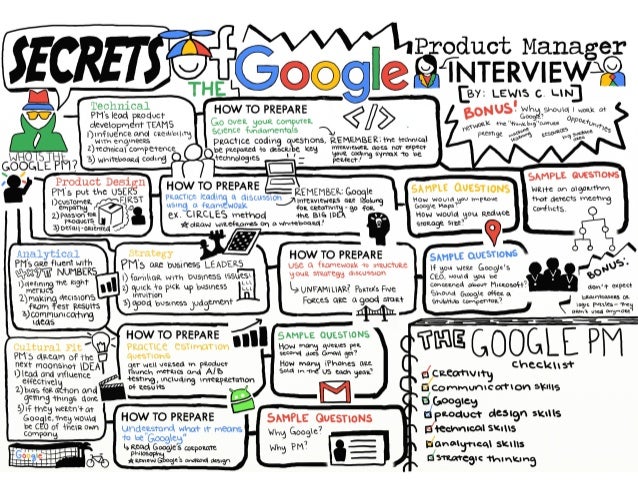 SECRETS Of
THE Google
Product Manager
INTERVIEW
[BY: LEWIS C. LIN]
WHO IS THE
GOOGLE PM?
Technical
PM's lead product
development TEAMS
1) influence and credibility
with engineers
2) technical competence
3) whiteboard coding
HOW TO PREPARE
Go over your computer
science fundamentals
practice coding questions,
be prepared to describe key
technologies
</>
REMEMBER: the technical
interviewer does not expect
your coding syntax to be
perfect!
BONUS! Why should I work at
Google?
network the "think big" culture
opportunities
prestige machine
learning
resources
big audience
SAMPLE QUESTIONS
Write an algorithm
that detects meeting
conflicts.
Product Design
PM's put the USERS
FIRST
1) customer
empathy
2) passion for
products
3) detail-oriented
HOW TO PREPARE
Practice leading a discussion
using a framework
ex. CIRCLES method
★draw wireframes on a whiteboard!
REMEMBER: Google
interviewers are looking
for creativity - go for
the BIG IDEA
SAMPLE QUESTIONS
How would you improve
Google Maps?
How would you reduce
storage size?
Analytical
PM's are fluent with
NUMBERS
1) defining the right
metrics
2) making decisions
from test results
3) communicating
ideas
Strategy
PM's are business LEADERS
1) familiar with business issues
2) quick to pick up business
intuition
3) good business judgement
HOW TO PREPARE
Use a framework to structure
your strategy discussion
↳ UNFAMILIAR? Porter's Five
Forces are a good start
SAMPLE QUESTIONS
If you were Google's
CEO, would you be
concerned about Microsoft?
Should Google offer a
StubHub competitor?
BONUS:
don't expect
brainteasers or
logic puzzles - they
aren't used anymore!
Cultural Fit
PM's dream of the
next moonshot IDEA
1) lead and influence
effectively
2) bias for action and
getting things done
3) if they weren't at
Google, they would
be CEO of their own
company
Google
HOW TO PREPARE
Practice estimation
questions
get well versed in product
launch metrics and A/B
testing, including interpretation
of results
SAMPLE QUESTIONS
How many queries per
second does Gmail get?
How many iPhones are
sold in the US each year?
HOW TO PREPARE
Understand what it means
to be "Googley"
↳ Read Google's corporate
philosophy
★Review Google's android design
SAMPLE QUESTIONS
Why Google?
Why PM?
THE GOOGLE PM
checklist
creativity
communication skills
Googley
product design skills
technical skills
analytical skills
strategic thinking